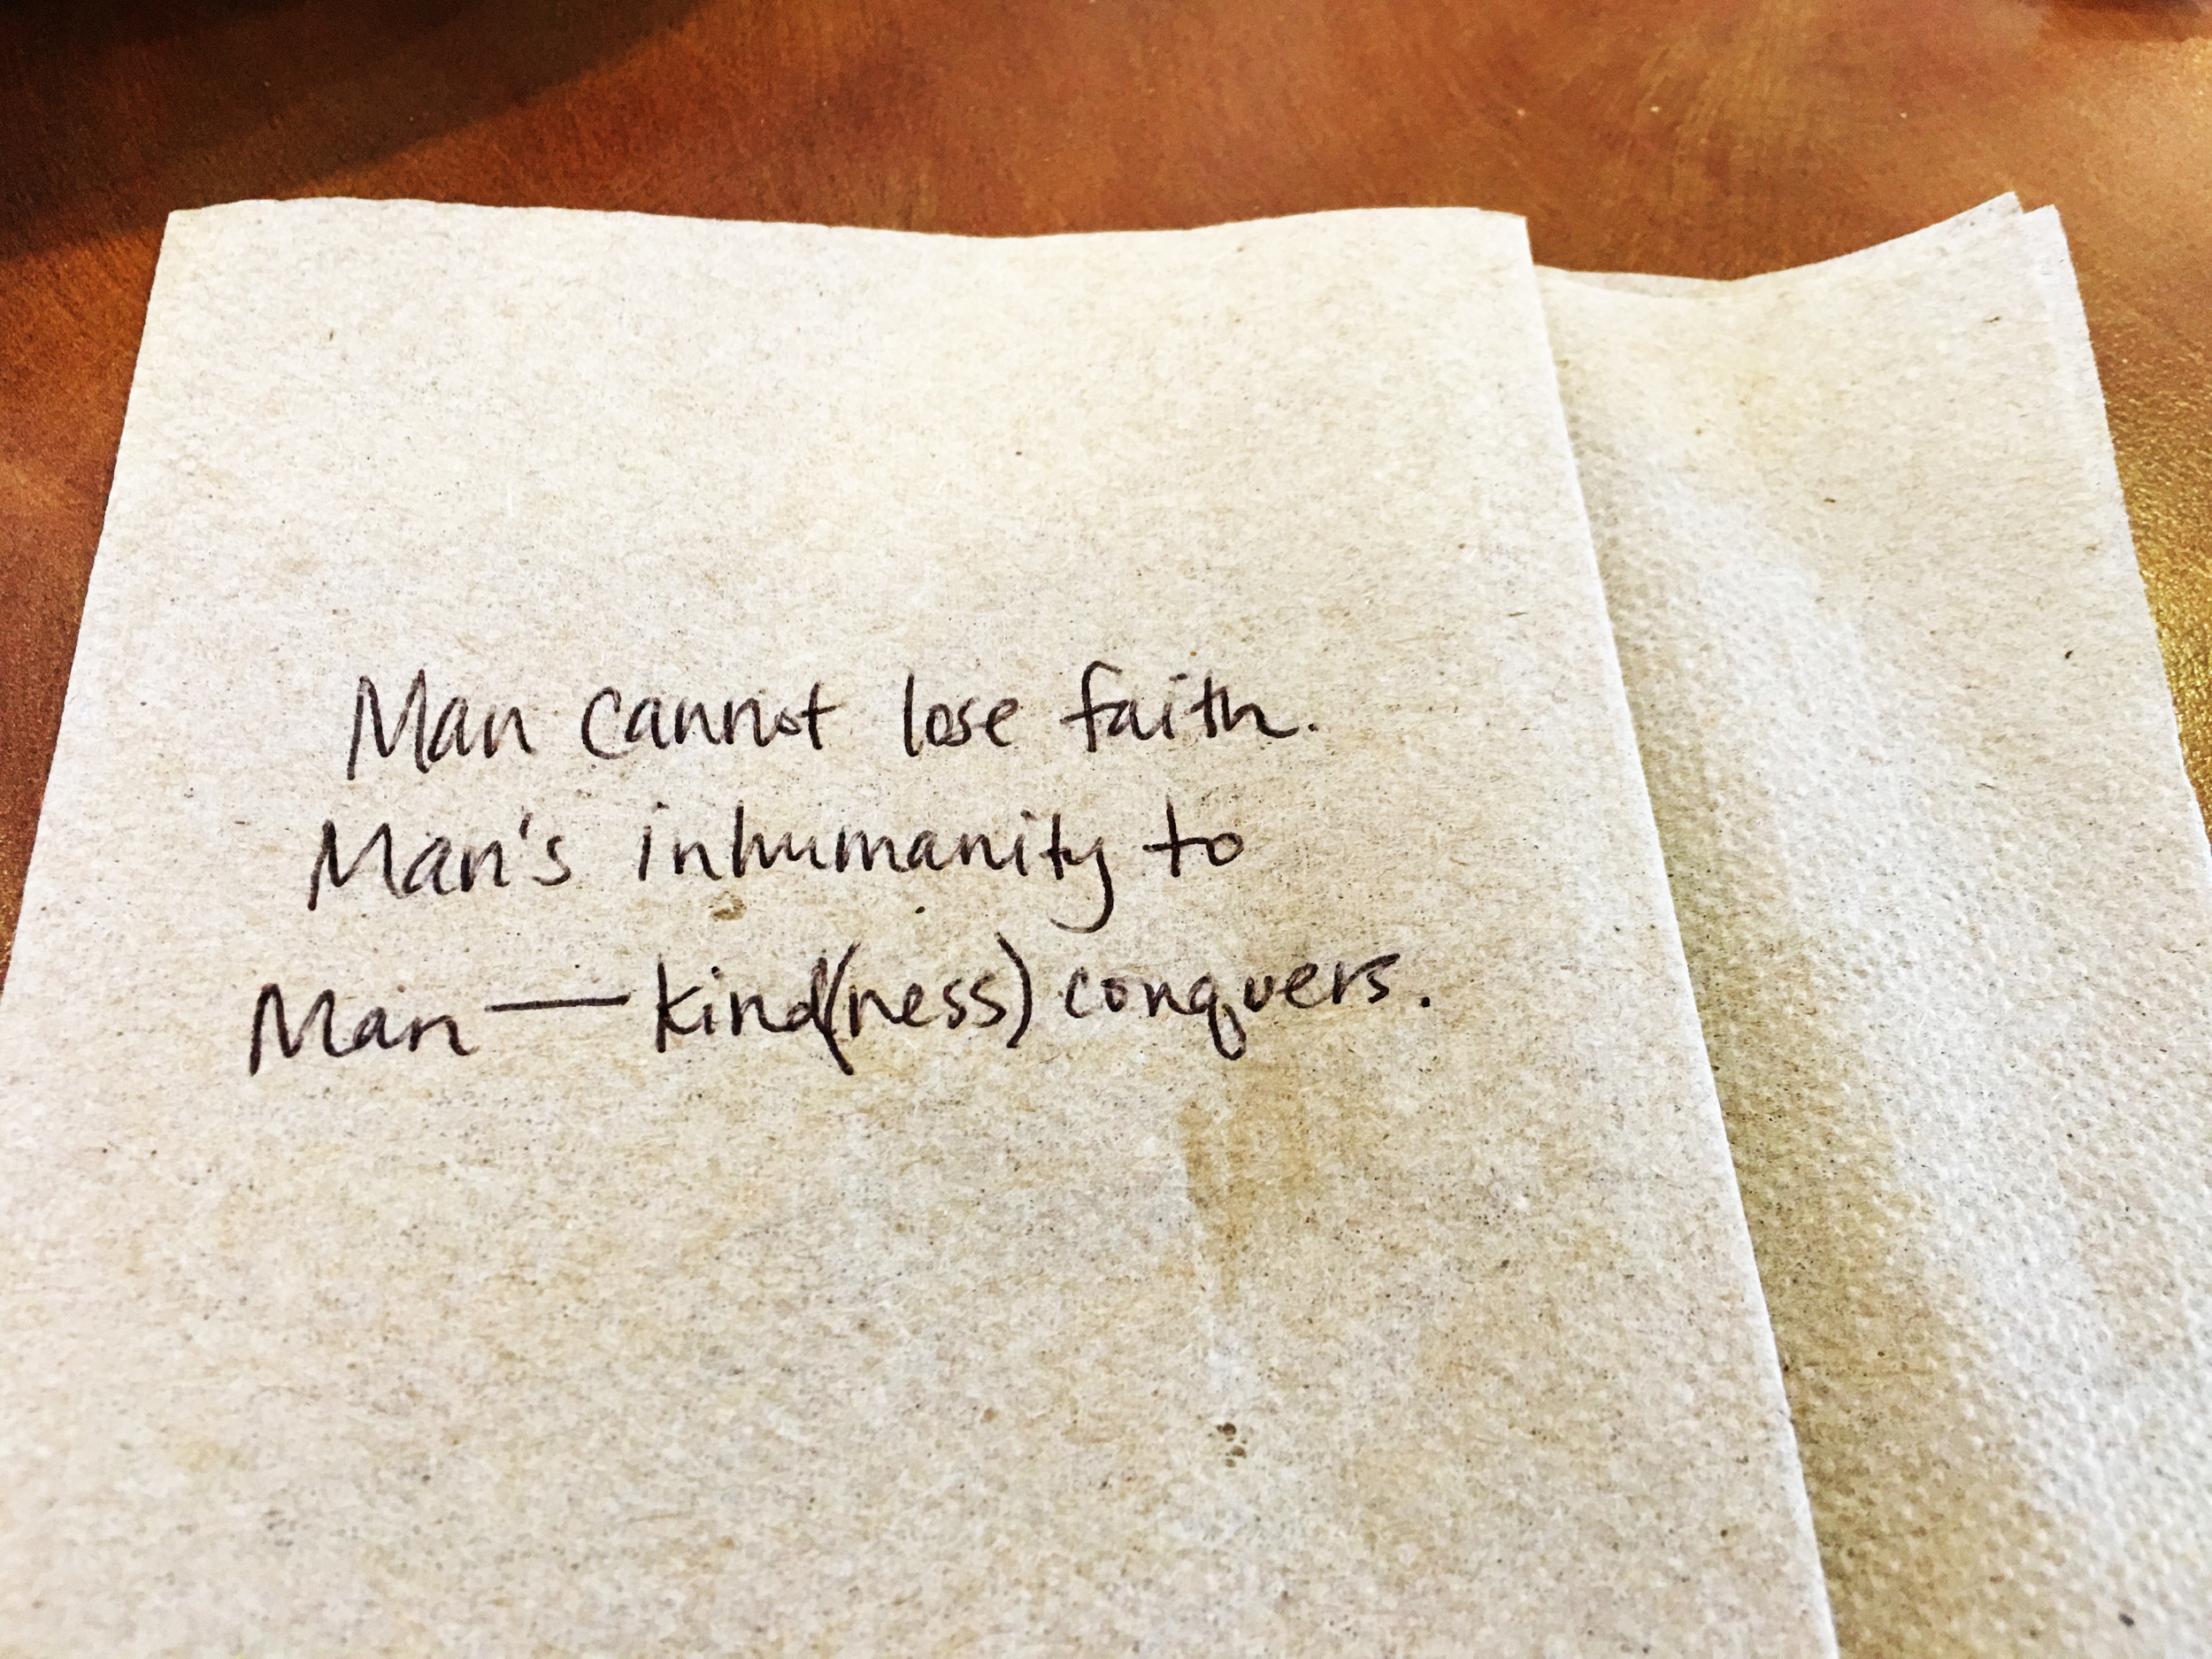 Man cannot lose faith.
Man's inhumanity to
Man — kind(ness) conquers.